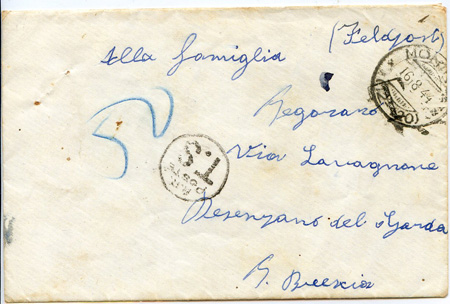 (Feldpost)
Alla famiglia
Begozano
Via Lavagnone
Desenzano del Garda
B. Brescia
16.8.44
POSTE